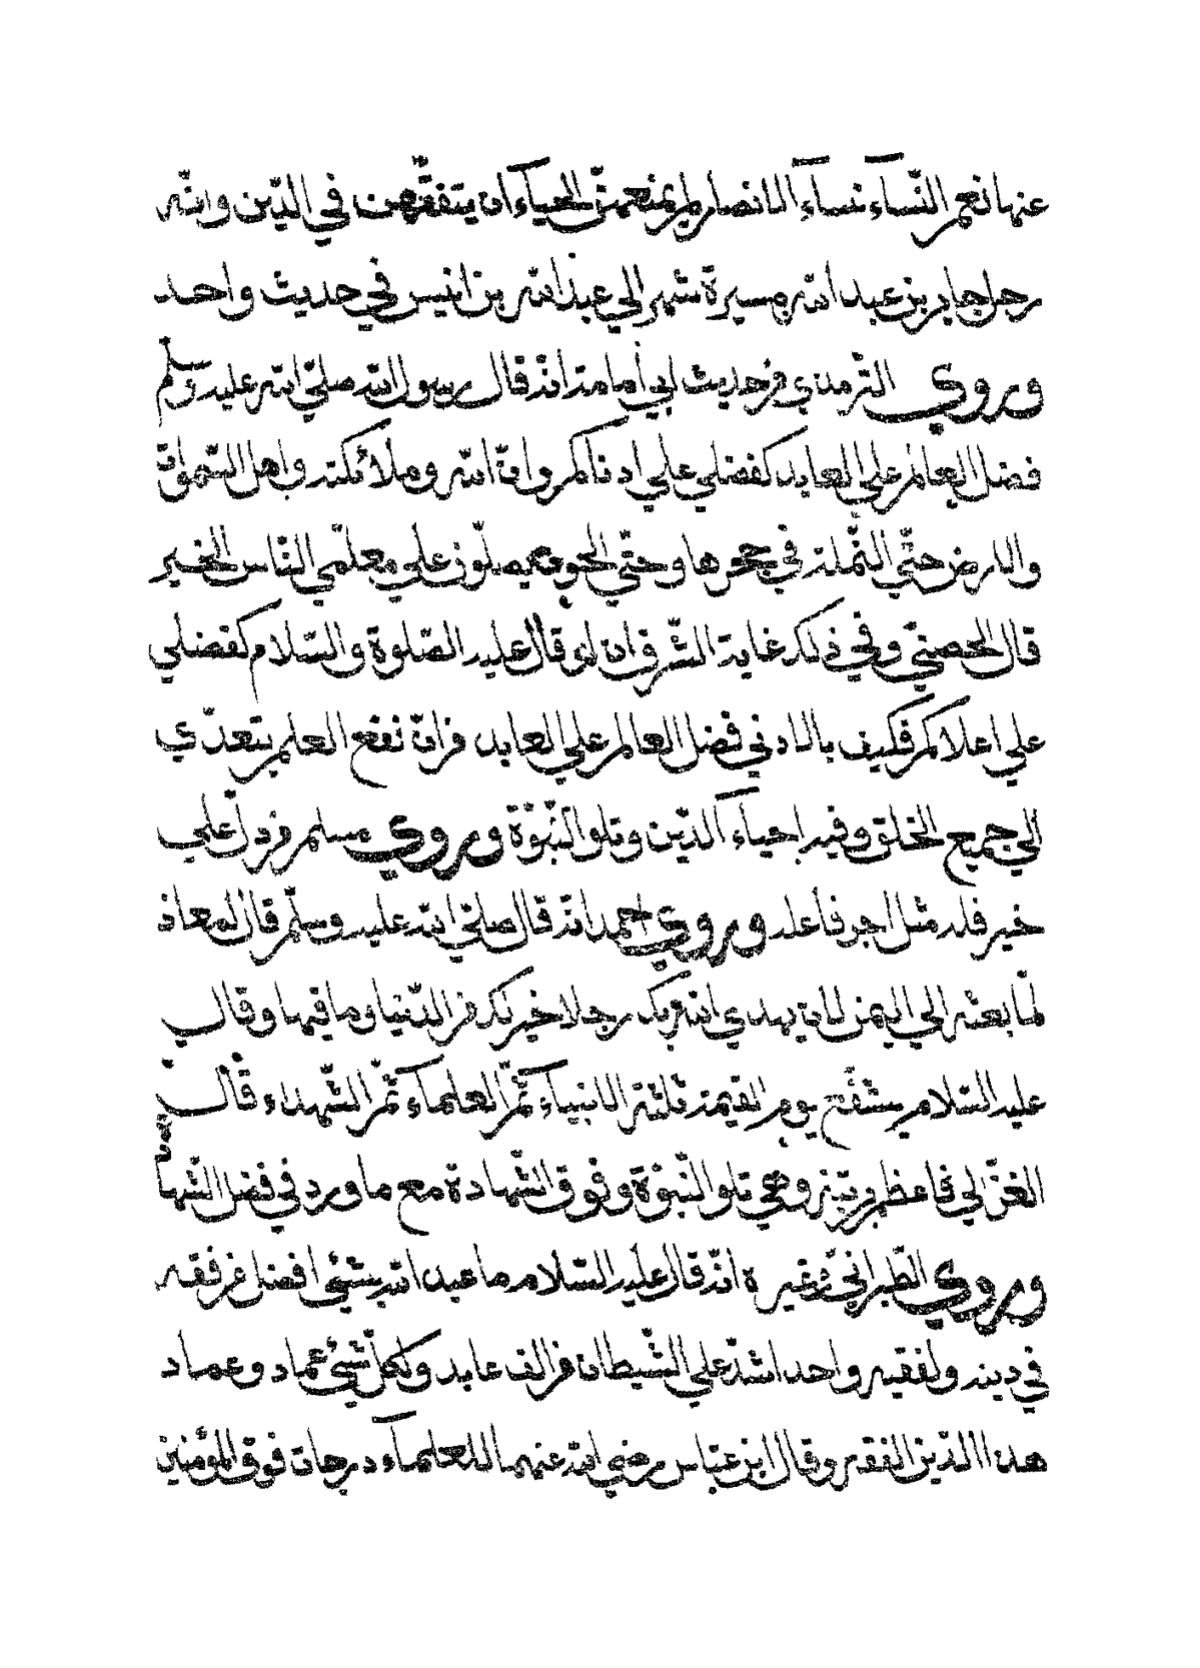 عنها نعم النّساء نساء الانصار لم يمنعهنّ الحياء ان يتفقّهن في الدّين وانّه
رحل جابر بن عبد الله مسيرة شهر الي عبد الله بن انيس في حديث واحد
وروي الترمذي من حديث ابي أمامة انه قال رسول الله صلّي الله عليه وسلّم
فضل العالم علي العابد كفضلي علي ادناكم وانّ الله وملائكته واهل السّموات
والارض حتّي النّملة في جحرها وحتّي الحوت يصلّون علي معلّمي النّاس الخير
قال الحصنيّ وفي ذلك غاية الشّرف ان لو قال عليه الصّلوة والسّلام كفضلي
علي اعلاكم فكيف بالادني فضل العالم علي العابد فانّ نفع العلم يتعدّي
الي جميع الخلق وفيه احياء الدّين وتلو النّبوّة وروي مسلم من دلّ علي
خير فله مثل اجر فاعله وروي احمد انّه قال صلّي الله عليه وسلّم قال لمعاذ
لمّا بعثه الي اليمن لان يهدي الله بك رجلا خير لك من الدّنيا وما فيها وقال
عليه السّلام يشفّع يوم القيمة ثلثة الانبياء ثمّ العلماء ثمّ الشّهداء قال
الغزّالي فاعظم مرتبة وهي تلو النّبوّة وفوق الشّهادة مع ما ورد في فضل الشّهادة
وروي الطّبرانيّ وغيره انّه قال عليه السّلام ما عبد الله بشئي افضل من فقه
في دينه ولفقيه واحد اشدّ علي الشّيطان من الف عابد ولكلّ شئي عماد وعماد
هذا الدّين الفقه وقال ابن عبّاس رضي الله عنهما للعلماء درجات فوق المؤمنين